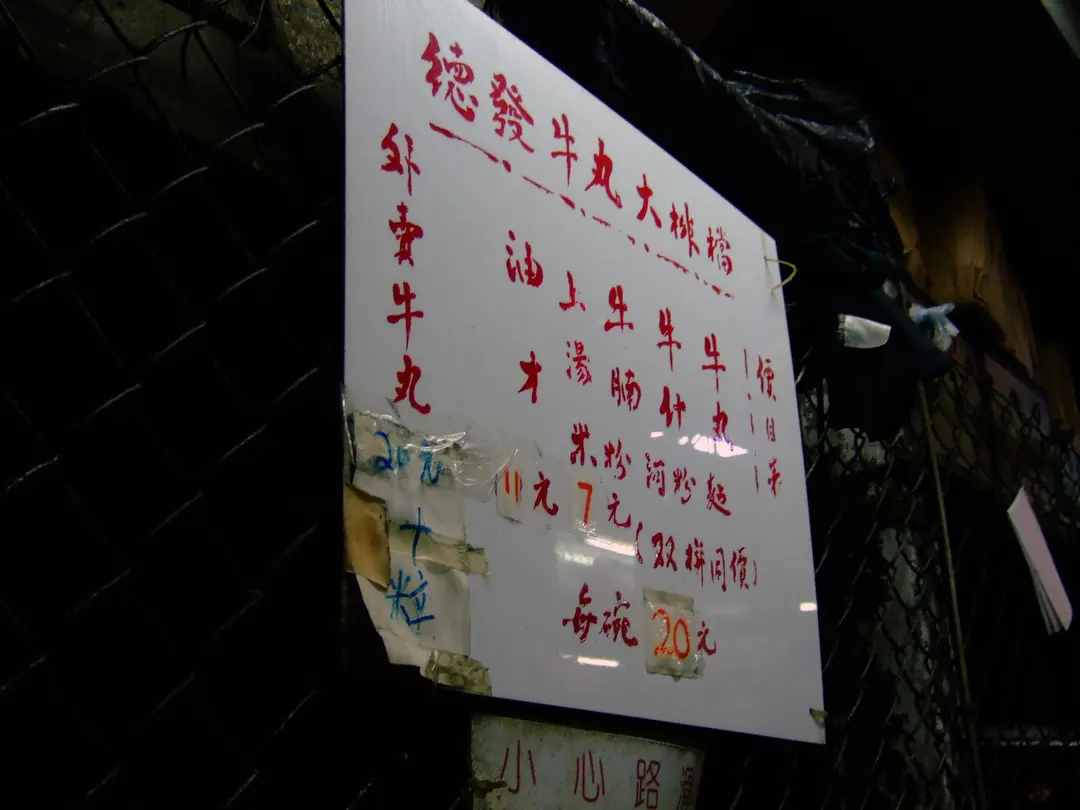 德發牛丸大排檔
價目表
牛丸
牛什
牛腩
米粉河粉麵
(双拼同價)
每碗20元
上湯
7元
油才
11元
外賣牛丸
20元
十粒
小心路